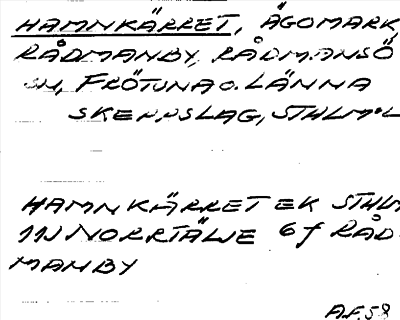 HAMNKÄRRET, ÄGOMARK,
RÅDMANBY, RÅDMANSÖ
SN, FRÖTUNA O. LÄNNA
SKEPPSLAG, STHLMS L
HAMNKÄRRET EK STHLM
11J NORRTÄLJE 6f RÅD-
MANBY
A.F. 58